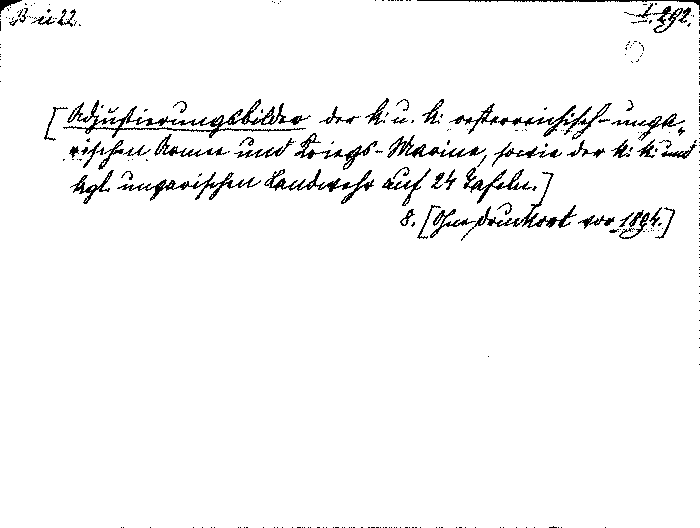 B ii 22.
I. 292.
[Adjustierungsbilder der k: u. k: oesterreichisch-unga„
rischen Armee und Kriegs-Marine, sowie der k: k: und
kgl. ungarischen Landwehr auf 24 Tafeln.]
8. [Ohne Druckort vor 1894.]